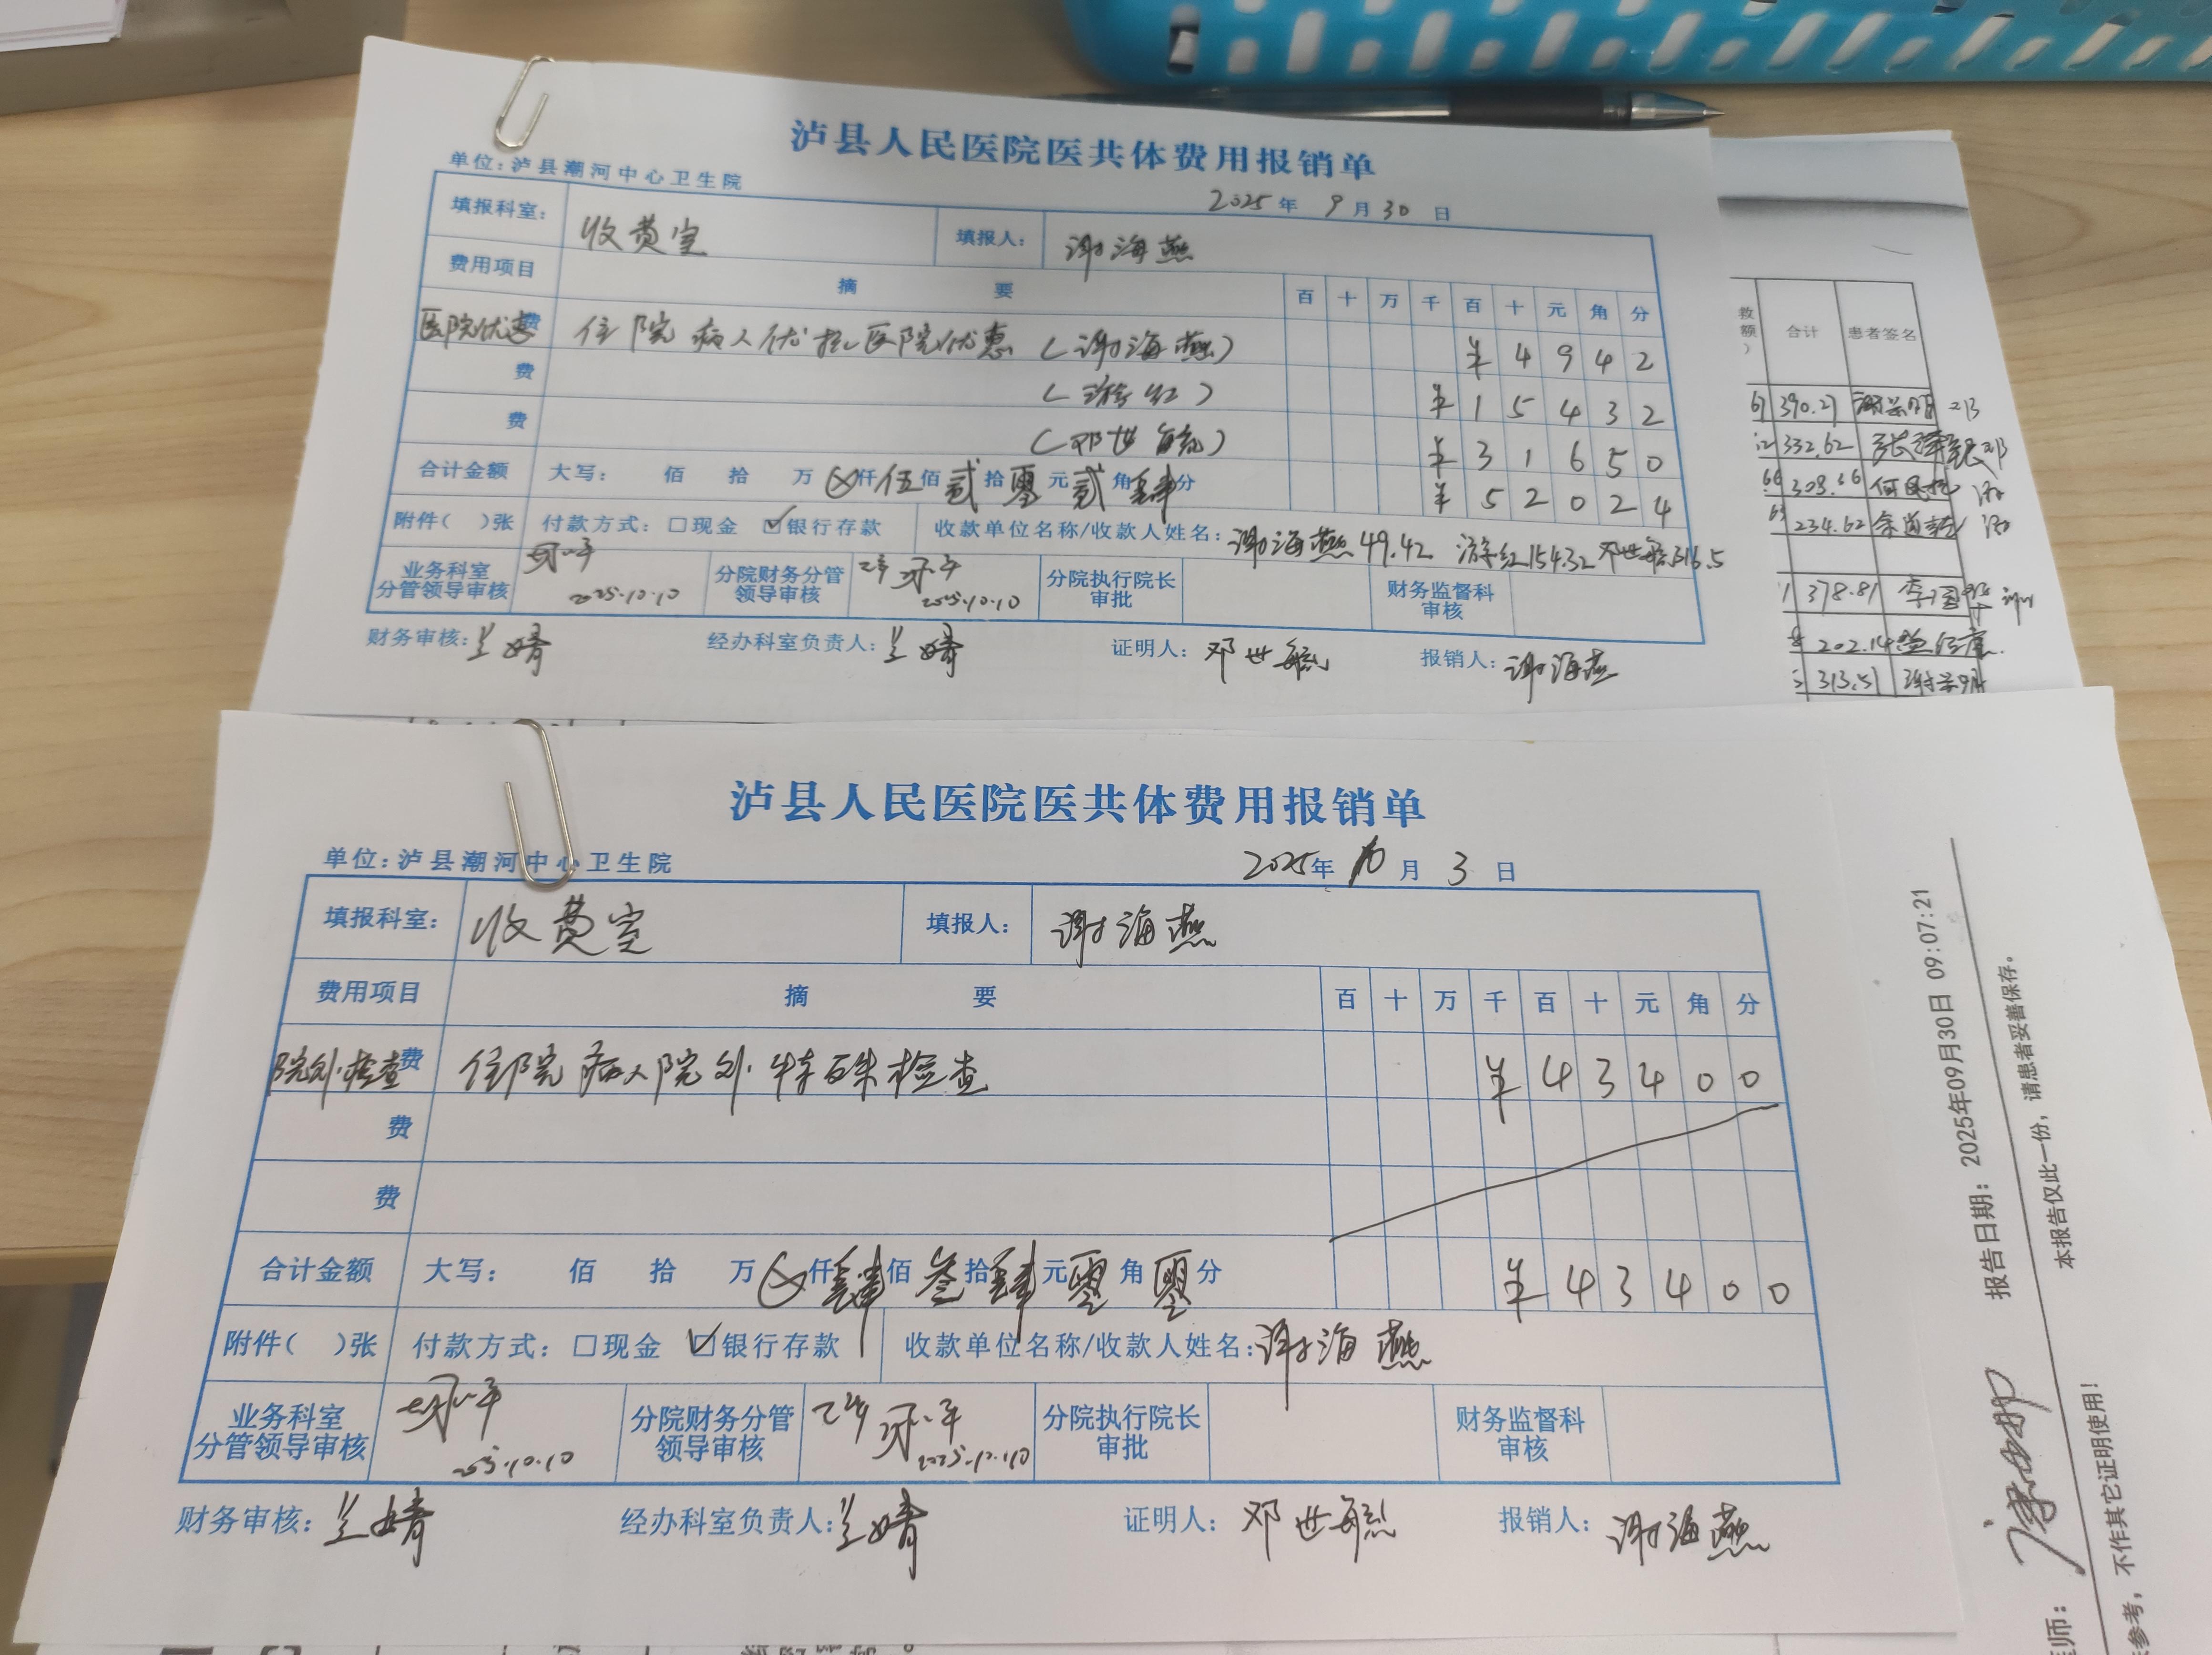 泸县人民医院医共体费用报销单
单位：泸县潮河中心卫生院 2025年 9月30日
填报科室： 收费室 填报人： 谢海燕
费用项目 摘 要 百 十 万 千 百 十 元 角 分
医院优惠费 住院病人优抚医院优惠（谢海燕） ¥ 4 9 4 2
费 （游红） ¥ 1 5 4 3 2
费 （邓世毓） ¥ 3 1 6 5 0
合计金额 大写： 佰 拾 万 ⊗仟伍佰贰拾零元贰角肆分 ¥ 5 2 0 2 4
附件（ ）张 付款方式：□现金 ☑银行存款 收款单位名称/收款人姓名：谢海燕49.42 游红154.32 邓世毓316.5
业务科室分管领导审核 2025.10.10 分院财务分管领导审核 2025.10.10 分院执行院长审批 财务监督科审核
财务审核：兰婧 经办科室负责人：兰婧 证明人：邓世毓 报销人：谢海燕
合计 患者签名
390.27
332.62
309.66
234.62
378.81
202.14
313.51
泸县人民医院医共体费用报销单
单位：泸县潮河中心卫生院 2025年 10月 3日
填报科室： 收费室 填报人： 谢海燕
费用项目 摘 要 百 十 万 千 百 十 元 角 分
院外检查费 住院病人院外特殊检查 ¥ 4 3 4 0 0
费
费
合计金额 大写： 佰 拾 万 ⊗仟肆佰叁拾肆元零角零分 ¥ 4 3 4 0 0
附件（ ）张 付款方式：□现金 ☑银行存款 收款单位名称/收款人姓名：谢海燕
业务科室分管领导审核 2025.10.10 分院财务分管领导审核 2025.10.10 分院执行院长审批 财务监督科审核
财务审核：兰婧 经办科室负责人：兰婧 证明人：邓世毓 报销人：谢海燕
报告日期：2025年09月30日 09:07:21
本报告仅此一份，请患者妥善保存。
参考，不作其它证明使用！
师：